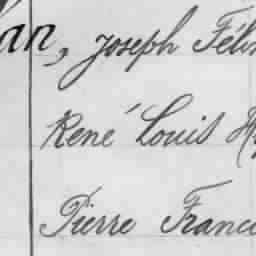 an, Joseph Féli
René Louis H
Pierre Franc